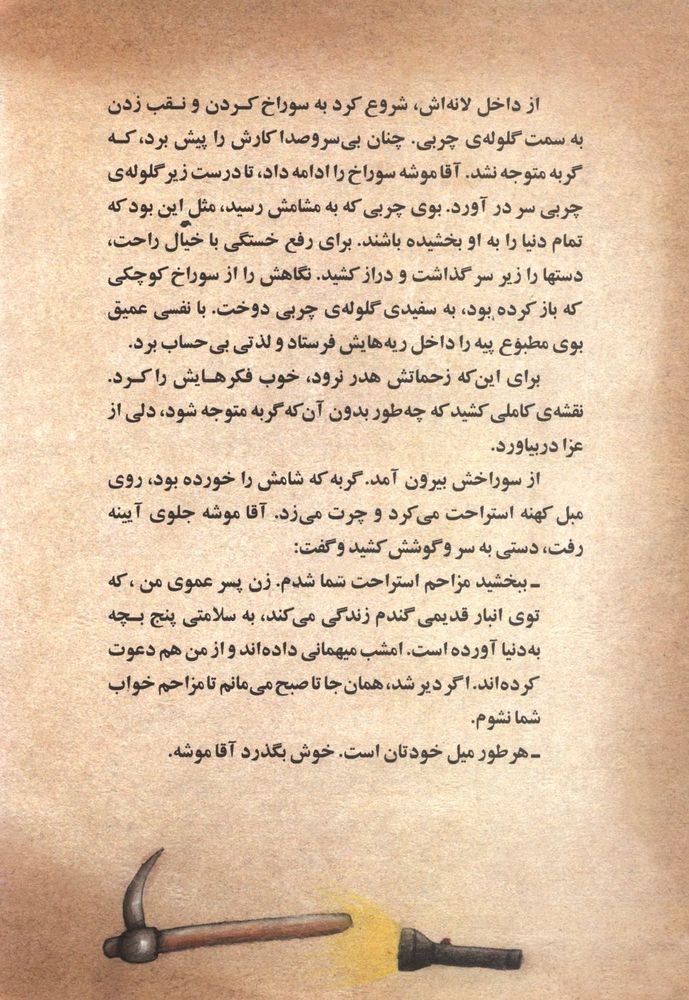 از داخل لانه‌اش، شروع کرد به سوراخ کردن و نقب زدن
به سمت گلوله‌ی چربی. چنان بی‌سروصدا کارش را پیش برد، که
گربه متوجه نشد. آقا موشه سوراخ را ادامه داد، تا درست زیر گلوله‌ی
چربی سر در آورد. بوی چربی که به مشامش رسید، مثل این بود که
تمام دنیا را به او بخشیده باشند. برای رفع خستگی با خیال راحت،
دستها را زیر سر گذاشت و دراز کشید. نگاهش را از سوراخ کوچکی
که باز کرده بود، به سفیدی گلوله‌ی چربی دوخت. با نفسی عمیق
بوی مطبوع پیه را داخل ریه‌هایش فرستاد و لذتی بی‌حساب برد.
برای این‌که زحماتش هدر نرود، خوب فکرهایش را کرد.
نقشه‌ی کاملی کشید که چه‌طور بدون آن‌که گربه متوجه شود، دلی از
عزا دربیاورد.
از سوراخش بیرون آمد. گربه که شامش را خورده بود، روی
مبل کهنه استراحت می‌کرد و چرت می‌زد. آقا موشه جلوی آیینه
رفت، دستی به سر و گوشش کشید و گفت:
ـ ببخشید مزاحم استراحت شما شدم. زن پسر عموی من ، که
توی انبار قدیمی گندم زندگی می‌کند، به سلامتی پنج بچه
به‌دنیا آورده است. امشب میهمانی داده‌اند و از من هم دعوت
کرده‌اند. اگر دیر شد، همان جا تا صبح می‌مانم تا مزاحم خواب
شما نشوم.
ـ هرطور میل خودتان است. خوش بگذرد آقا موشه.